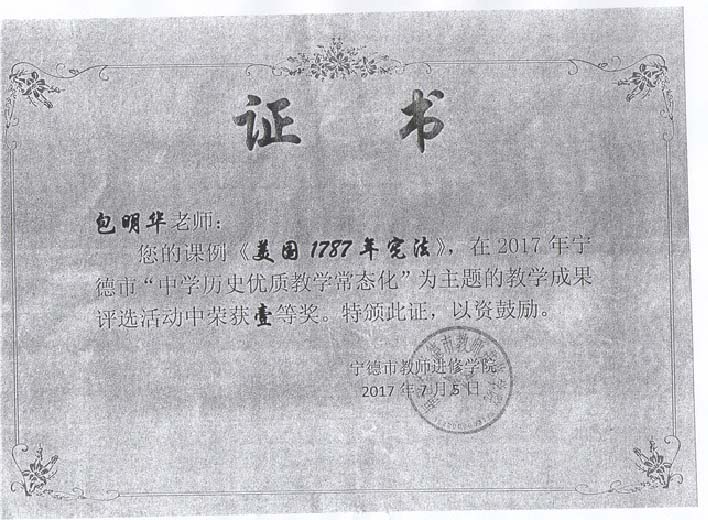 证 书
包明华老师：
您的课例《美国1787年宪法》，在2017年宁
德市“中学历史优质教学常态化”为主题的教学成果
评选活动中荣获壹等奖。特颁此证，以资鼓励。
宁德市教师进修学院
2017年7月5日